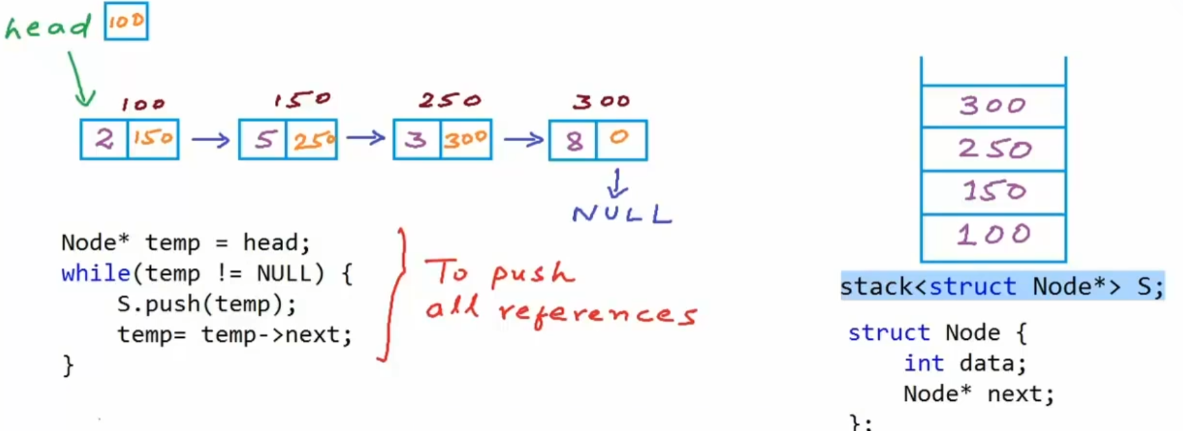 head 100
100 150 250 300
2 150 5 250 3 300 8 0
NULL
Node* temp = head;
while(temp != NULL) {
S.push(temp);
temp= temp->next;
}
To push
all references
300
250
150
100
stack<struct Node*> S;
struct Node {
int data;
Node* next;
};